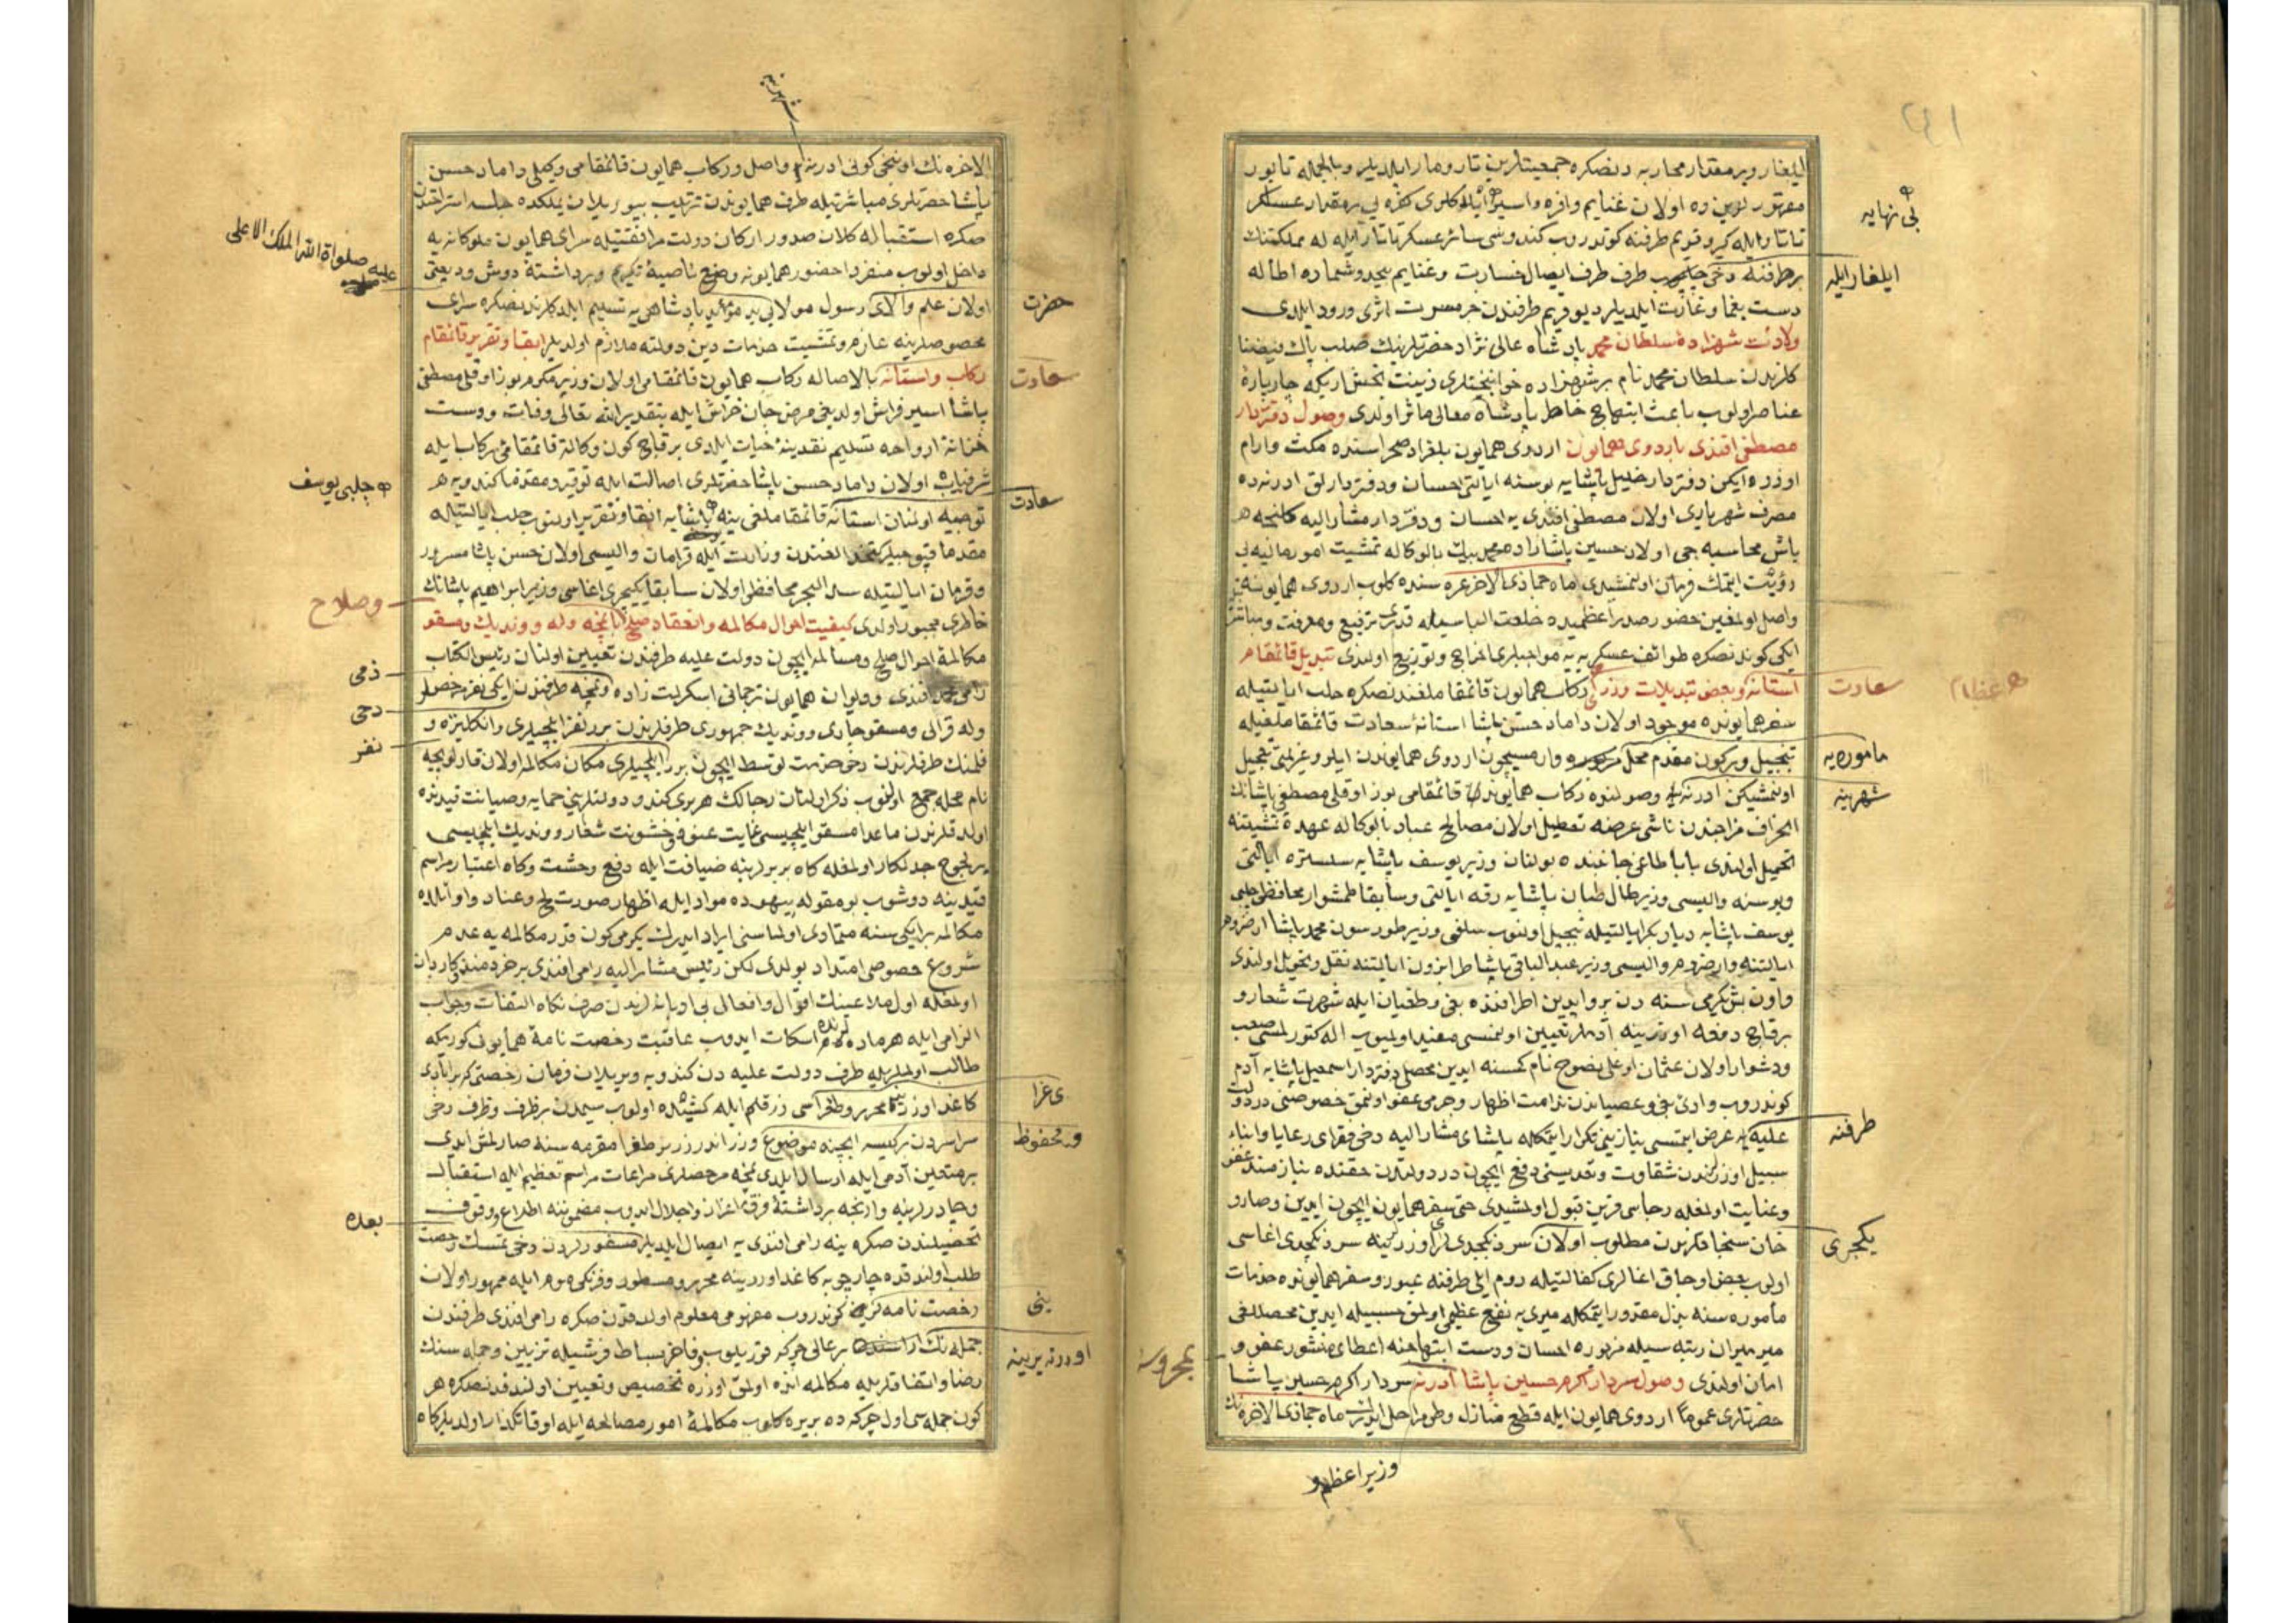 ایلغار و بر مقدار محاربه دنصکره جمعیتلرین تار و مار ایلدیلر و بالجمله تابور
مقهور لرین ده اولان غنایم وافره و اسیر
تاتار ایله کیرو قریم طرفنه کوندروب کندوسی سائر عسکر تاتار ایله له مملکتنك
بر طرفنه دخی طرف طرف ایصال خسارت و غنایم بیحد و شماره اطاله
دست یغما و غارت ایلدیلر دیو قریم طرفندن خبر مسرت اثری ورود ایلدی
ولادت شهزاده سلطان محمد پادشاه عالی نژاد حضرتلرینك صلب پاك
کلزندن سلطان محمد نام بر شهزاده جوانبختلری زینت بخش اریکه چارپاره
عناصر اولوب باعث ابتهاج خاطر پادشاه معالی ماثر اولدی وصول دفتردار
مصطفی افندی باردوی همایون اردوی همایون بلغراد صحراسنده مکث و ارام
اوزره ایکن دفتردار خلیل پاشایه بوسنه ایالتی احسان و دفتردارلق ادرنه ده
مصرف شهریاری اولان مصطفی افندی یه احسان و دفتردار مشارالیه کلنجه
باش محاسبه جی اولان حسین پاشا زاده محمد بیك بالوکاله تمشیت امور مالیه یی
رؤیت ایتمك فرمان اولنمشیدی ماه جماذی الاخر غره سنده کلوب اردوی همایونه
واصل اولمغین حضور صدر اعظمیده خلعت الباسیله قدری ترفیع و معرفت
ایکی کوندنصکره طوائف عسکریه یه مواجبلری اخراج و توزیع اولندی تبدیل قائمقام
استانه و بعض تبدیلات وزرا رکاب همایون قائمقاملغندنصکره حلب ایالتیله
سفر همایونده موجود اولان داماد حسن پاشا استانه سعادت قائمقاملغیله
تبجیل و بر کون مقدم محل وارمسیچون اردوی همایوندن ایلرو عزیمتی تعجیل
اولنمشیکن ادرنه یه وصولنده رکاب همایونده قائمقامی بوزاوقلی مصطفی پاشانك
انحراف مزاجندن ناشی عرضه تعطیل اولان مصالح عباد بالوکاله عهده
تحمیل اولندی بابا طاغی جانبنده بولنان وزیر یوسف پاشایه سلستره ایالتی
و بوسنه والیسی وزیر طال طبان پاشایه رقه ایالتی و سابقا طمشوار محافظی چلبی
یوسف پاشایه دیاربکر ایالتیله تبجیل اولنوب سلفی وزیر طورسون محمد پاشا ارضروم
ایالتنه و ارضروم والیسی وزیر عبدالباقی پاشا طرابزون ایالتنه نقل و تحویل اولندی
و اون بش یکرمی سنه دن برو ایدین اطرافنده بغی و طغیان ایله شهرت شعار و
برقاج دفعه اوزرینه آدملر تعیین اولنمسی مفید اولمیوب اله کتورلمسی صعب
و دشوار اولان عثمان اوغلی نصوح نام کمسنه ایدین محصلی دفتردار اسمعیل پاشایه آدم
کوندروب وادئ بغی و عصیاندن ندامت اظهار و جرمی عفو اولنمق خصوصنی در دولت
علیه یه عرض ایتمسی نیازینی تکرار ایتمکله پاشای مشارالیه دخی فقرای رعایا و ابناء
سبیل اوزرلرندن شقاوت و تعدیسنی دفع ایچون در دولتدن حقنده نیازمند عفو
و عنایت اولمغله رجاسی قرین قبول اولمشیدی حتی سفر همایون ایچون ایدین و صارو
خان سنجاقلرندن مطلوب اولان سردنکچدی لر اوزرلرینه سردنکچدی اغاسی
اولوب بعض اوجاق اغالری کفالتیله روم ایلی طرفنه عبور و سفر همایونده خدمات
مأموره سنه بذل مقدور ایتمکله میری یه نفع عظیمی اولمق حسبیله ایدین محصللغی
میر میران رتبه سیله مزبوره احسان و دست ابتهاجنه اعطای منشور عفو و
امان اولندی وصول سردار اکرم حسین پاشا ادرنه سردار اکرم حسین پاشا
حضرتلری عموما اردوی همایون ایله قطع منازل و طی مراحل ایدرك ماه جماذی الاخره نك
بی نهایه
ایلغار ایله
سعادت
عظام
ماموره یه
شهرینه
طرفنه
یکچری
محروسه
وزیر اعظم و
الاخره نك اوننجی کونی ادرنه واصل و رکاب همایون قائمقامی وکیلی داماد حسن
پاشا حضرتلری مباشرتیله طرف همایوندن ترتیب بیوریلان یملکده جلسه استراحتدن
صکره استقباله کلان صدور ارکان دولت مرافقتیله سرای همایون ملوکانه یه
داخل اولوب منفردا حضور همایونه وضع ناصیه تکریم و برداشته دوش ودیعتی
اولان علم والای رسول مولایی ید مؤید پادشاهی یه تسلیم ایلدکلرندنصکره سرای
مخصوصلرینه عازم و تمشیت خدمات دین و دولته ملازم اولدیلر ابقا و تقریر قائمقام
رکاب و استانه بالاصاله رکاب همایون قائمقامی اولان وزیر مکرم بوزاوقلی مصطفی
پاشا اسیر فراش اولدیغی مرض جان خراش ایله بتقدیر الله تعالی وفات و دست
خزانه ارواحه تسلیم نقدینه حیات ایلدی برقاج کون وکالة قائمقامئ رکاب ایله
شرفیاب اولان داماد حسن پاشا حضرتلری اصالت ایله توقیر و مقدما کندویه
توجیه اولنان استانه قائمقاملغی ینه پاشایه ابقا و تقریر اولنوب حلب ایالتیله
مقدما قپوجیلر کتخدالغندن وزارت ایله قرامان والیسی اولان حسن پاشا مسرور
و قرمان ایالتیله سد البحر محافظی اولان سابقا یکیچری اغاسی وزیر ابراهیم پاشانك
خاطری مجبور اولدی کیفیت احوال مکالمه و انعقاد صلح با نمچه و له و وندیك و مسقو
مکالمه احوال صلح و مسالمه ایچون دولت علیه طرفندن تعیین اولنان رئیس الکتاب
رامی محمد افندی و دیوان همایون ترجمانی اسکرلت زاده و نمچه طرفندن ایکی نفر مرخصلر
و له قرالی و مسقو چاری و وندیك جمهوری طرفلرندن برر نفر ایلچیلری و انکلتره و
فلمنك طرفلرندن دخی خدمت توسط ایچون برر ایلچیلری مکان مکالمه اولان قارلوفچه
نام محله جمع اولنوب ذکر اولنان رجالك هر بری کندو دولتلرینی حمایه و صیانت قیدنده
اولدقلرندن ماعدا مسقو ایلچیسی غایت عنف و خشونت شعار و وندیك ایلچیسی
بر لجوج جدلکار اولمغله کاه بربرلرینه ضیافت ایله دفع وحشت و کاه اعتبار مراسم
قیدینه دوشوب بو مقوله بیهوده مواد ایله اظهار صورت لج و عناد و اوائلده
مکالمه برایکی سنه متمادی اولماسنی ایراد ایدرك یکرمی کون قدر مکالمه یه عدم
شروع خصوصی امتداد بولدی لکن رئیس مشارالیه رامی افندی بر خردمند کاردان
اولمغله اول ملاعینك اقوال و افعال بی ادبانه لرندن صرف نکاه التفات و جواب
الزامی ایله هر ماده ده اسکات ایدوب عاقبت رخصت نامه همایونی کورمکه
طالب اولدیلر ایله طرف دولت علیه دن کندویه ویریلان فرمان رخصتی کبیر آبادی
کاغد اوزره محرر و طغراسی زر قلم ایله کشیده اولوب سیمدن بر ظرف و ظرف دخی
سراسردن بر کیسه ایچنه موضوع و زراندرزر بر طغرا مقرمه سنه صارلمش ایدی
بر معتمین آدمی ایله ارسال ایلدی نمچه مرخصلری مراعات مراسم تعظیم ایله استقبال
و چادرلرینه وارنجه برداشته فرق اعزاز و اجلال ایدوب مضموننه اطلاع و وقوف
تحصیلندن صکره ینه رامی افندی یه ایصال ایلدیلر مسفورلردن دخی تمسك رخصت
طلب اولندقده چارچوبه کاغد اوزرینه محرر و مسطور و فرنکی موم ایله ممهور اولان
رخصت نامه لرین کوندروب مفهومی معلوم اولدقدن صکره رامی افندی طرفندن
جمله نك بر عالی چرکه قوریلوب و فاخر بساط و فرشیله تزیین و جمله سنك
رضا و اتفاقلریله مکالمه انده اولمق اوزره تخصیص و تعیین اولندقدنصکره هر
کون جمله سی اول چرکه ده بریره کلوب مکالمه امور مصالحه ایله اوقاتکذار اولدیلر کاه
شهرینه
علیه صلواة الله الملك الاعلی
حضرت
سعادت
چلبی یوسف
سعادت
و صلاح
ذمی
دخی
نفر
ی غرا
و محفوظ
بعده
ینی
اوردیرینه